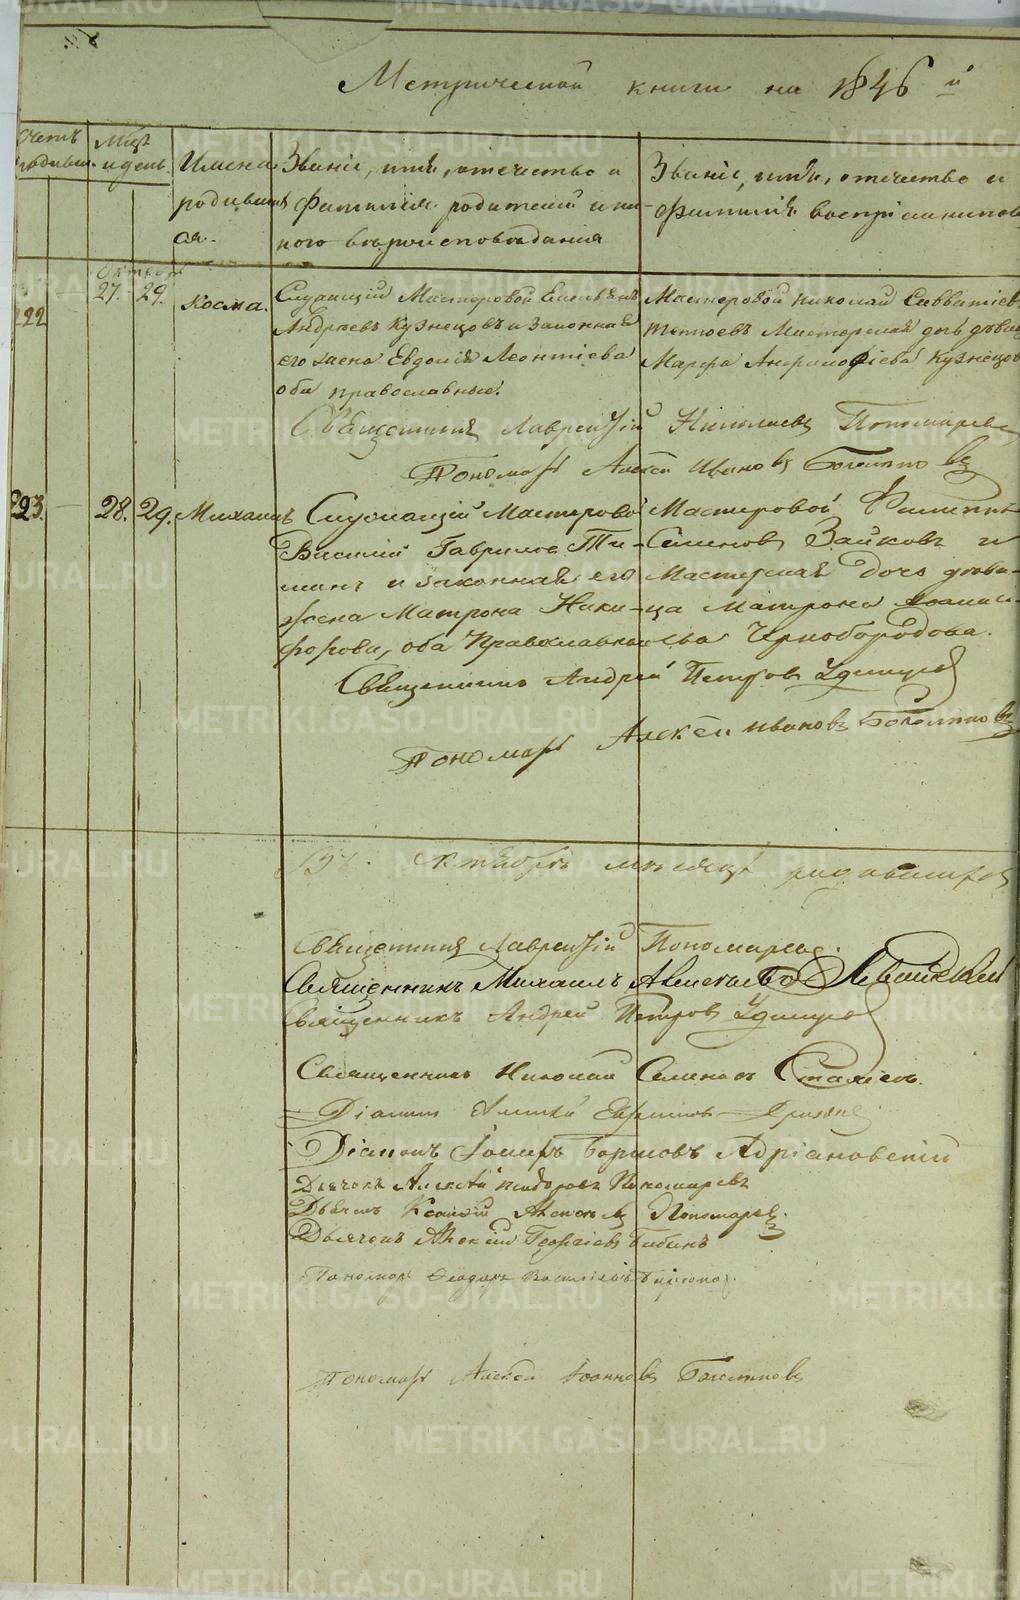 Метрической книги на 1846й
Счетъ родивш.
Мцъ и день.
Имена родившихся.
Званіе, имя, отчество и
фамилія родителей и ка-
кого вѣроисповѣданія
Званіе, имя, отчество и
фамилія воспріемниковъ
Октябрь
222
27. 29.
Косма.
Служащій Мастеровой
Андреевъ Кузнецовъ и законная
его жена Евдокія Леонтіева
оба православные.
Мастеровой Николай Савватіевъ
Мастерская дочь дѣвица
Марфа Кузнецова
Священникъ Лаврентій Николаевъ Пономаревъ
Пономарь Алексей Ивановъ
223.
28. 29.
Михаилъ
Служащій Мастеровой
Василій Гавриловъ Ти-
минъ и законная его
жена Матрона Ники-
форова, оба Православные
Мастеровой Филиппъ
Семеновъ Зайковъ и
Мастерская дочь дѣви-
ца Матрона
Чернобородова.
Священникъ Андрей Петровъ Удинцовъ
Пономарь Алексей Ивановъ
Священникъ Лаврентій Пономаревъ.
Священникъ Михаилъ Алексѣевъ Левитскій
Священникъ Андрей Петровъ Удинцовъ
Священникъ Николай Семеновъ
Діаконъ
Діаконъ Іосифъ Борисовъ Адріановскій
Дьячекъ Алексѣй Пономаревъ
Дьячекъ Пономаревъ.
Дьячекъ Алексій Георгіевъ Бабинъ
Пономарь Ѳеодоръ Васильевъ
Пономарь Алексей Іоанновъ
METRIKI.GASO-URAL.RU